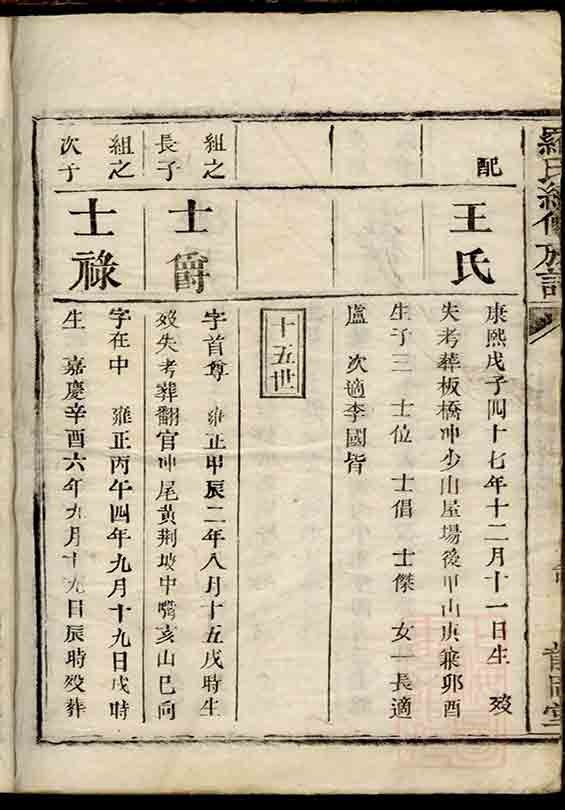 羅氏續修族譜
配
王氏
康熙戊子四十七年十二月十一日生 歿
失考葬板橋冲少山屋場後甲山庚兼卯酉
生子三 士位 士倡 士傑 女一長適
盧 次適李國皆
十五世
組之
長子
士爵
字首尊 雍正甲辰二年八月十五戌時生
歿失考葬翻官冲尾黃荆坡中嘴亥山巳向
組之
次子
士祿
字在中 雍正丙午四年九月十九日戌時
生 嘉慶辛酉六年九月十九日辰時歿葬